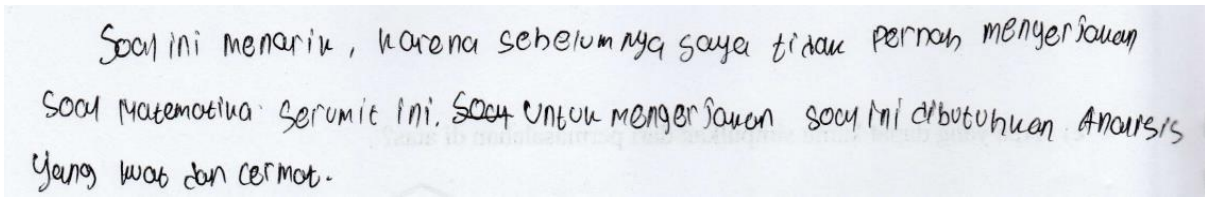 Soal ini menarik, karena sebelumnya saya tidak pernah mengerjakan
soal Matematika serumit ini. Soal untuk mengerjakan soal ini dibutuhkan Analisis
yang kuat dan cermat.